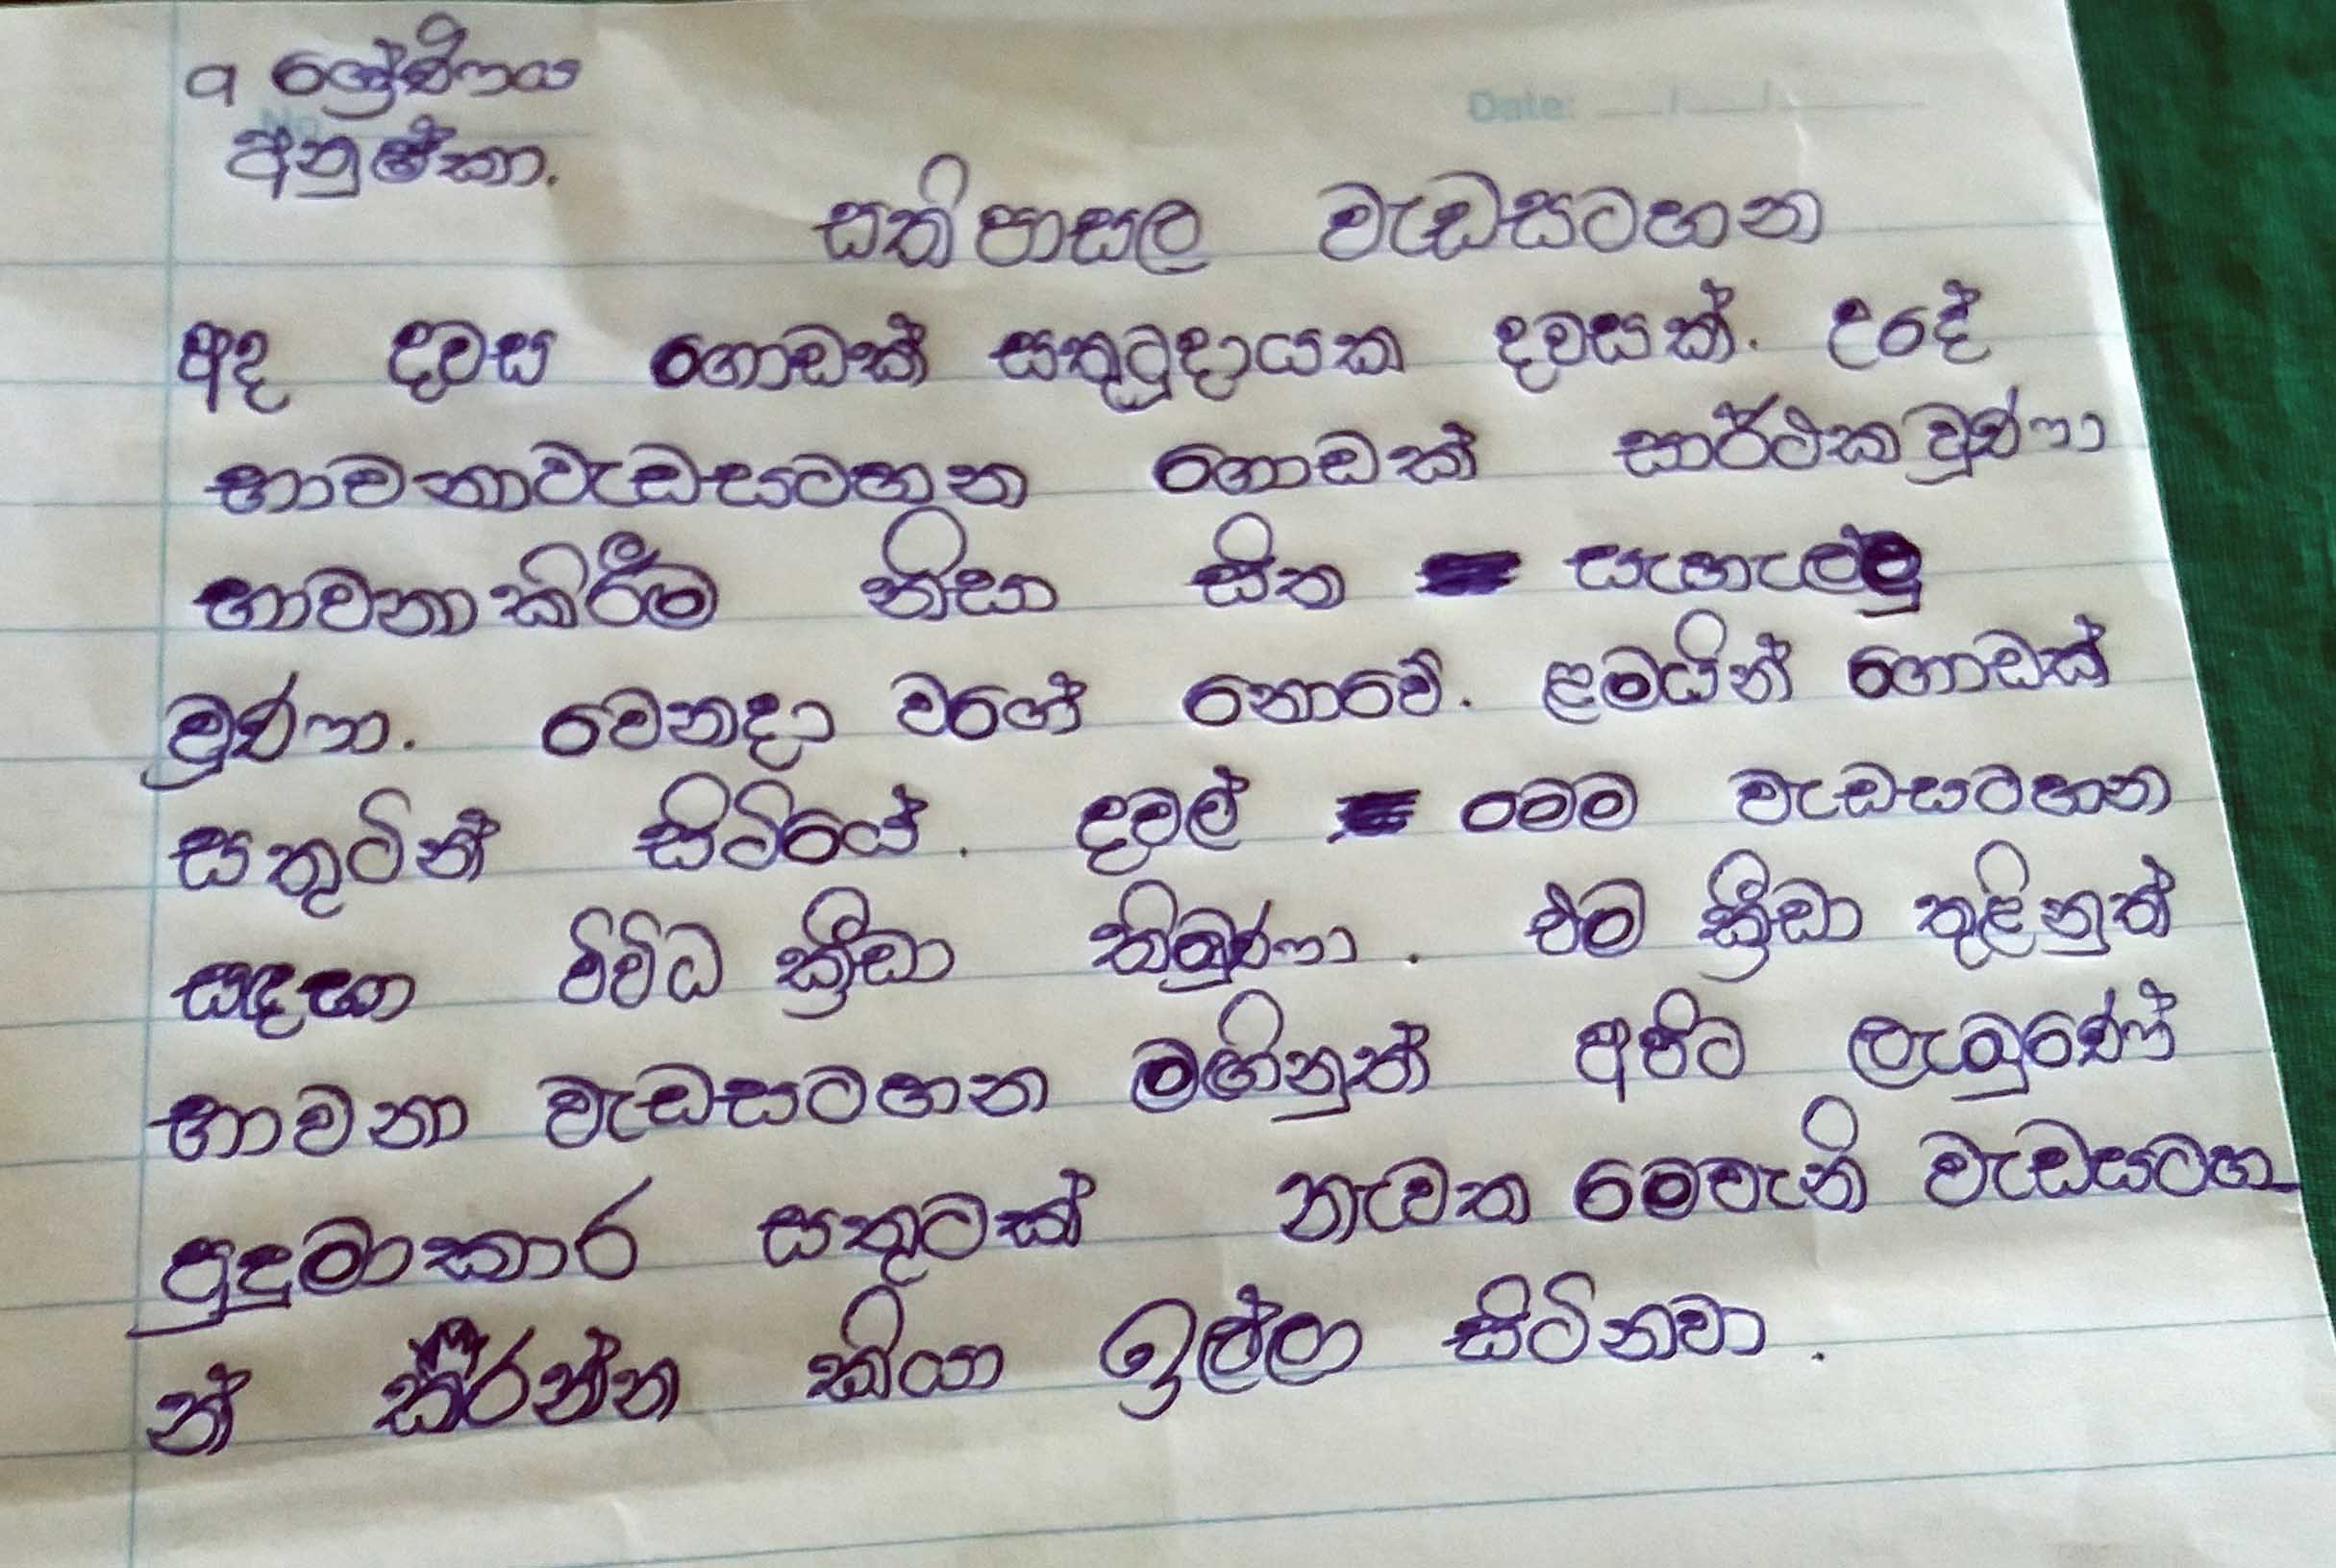 9 ශ්‍රේණිය
අනුෂ්කා.
Date:
සතිපාසල වැඩසටහන
අද දවස ගොඩක් සතුටුදායක දවසක්. උදේ
භාවනාවැඩසටහන ගොඩක් සාර්ථක වුණා
භාවනා කිරීම නිසා සිත සැහැල්ලු
වුණා. වෙනදා වගේ නොවේ. ළමයින් ගොඩක්
සතුටින් සිටියේ. දවල් මෙම වැඩසටහන
සඳහා විවිධ ක්‍රීඩා තිබුණා. එම ක්‍රීඩා තුළිනුත්
භාවනා වැඩසටහන මඟිනුත් අපිට ලැබුණේ
පුදුමාකාර සතුටක් නැවත මෙවැනි වැඩසටහ
න් කරන්න කියා ඉල්ලා සිටිනවා.